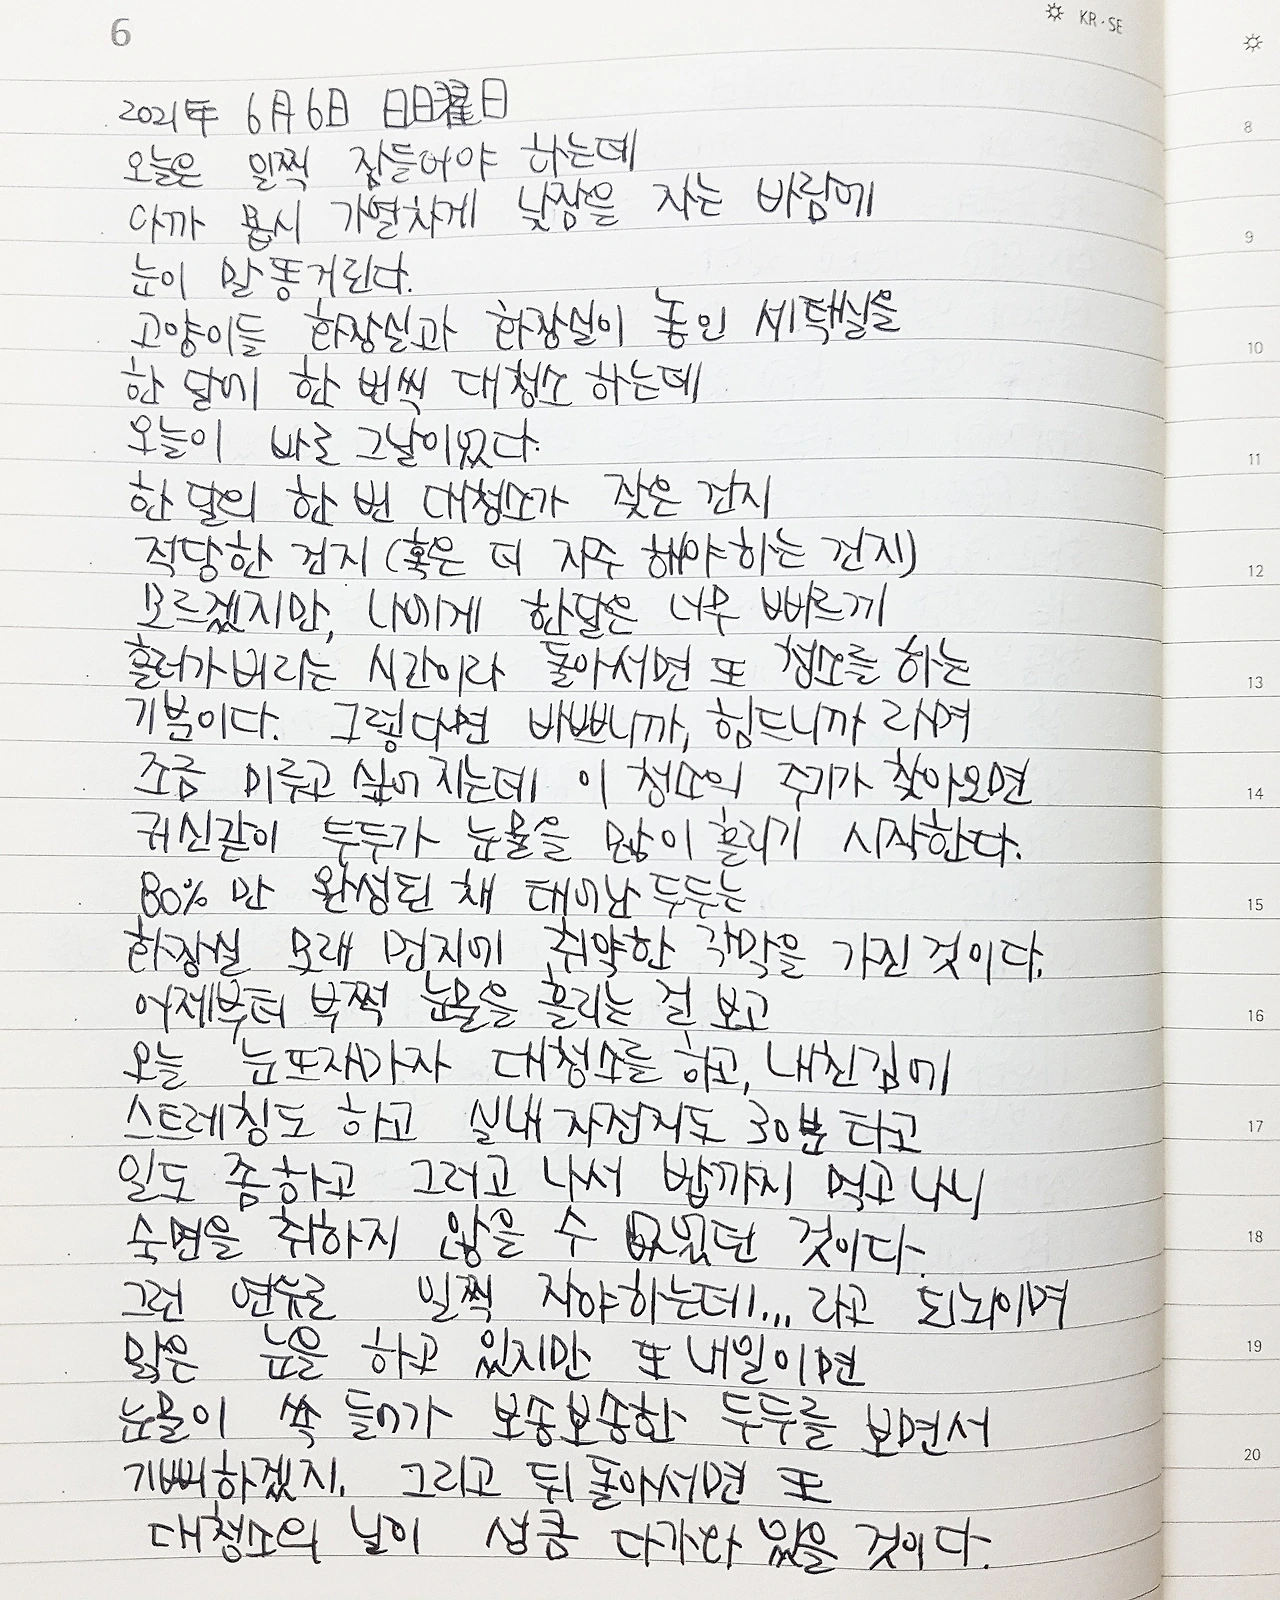 6
KR·SE
2021年 6月6日 日曜日
오늘은 일찍 잠들어야 하는데
아까 몹시 가열차게 낮잠을 자는 바람에
눈이 말똥거린다.
고양이들 화장실과 화장실이 놓인 세탁실을
한 달에 한 번씩 대청소 하는데
오늘이 바로 그날이었다.
한 달의 한 번 대청소가 잦은 건지
적당한 건지 (혹은 더 자주 해야하는 건지)
모르겠지만, 나에게 한달은 너무 빠르게
흘러가버리는 시간이라 돌아서면 또 청소를 하는
기분이다. 그렇다면 바쁘니까, 힘드니까 라며
조금 미루고 싶어지는데 이 청소의 주기가 찾아오면
귀신같이 두두가 눈물을 많이 흘리기 시작한다.
80%만 완성된 채 태어난 두두는
화장실 모래 먼지에 취약한 각막을 가진 것이다.
어제부터 부쩍 눈물을 흘리는 걸 보고
오늘 눈뜨자마자 대청소를 하고, 내친김에
스트레칭도 하고 실내 자전거도 30분 타고
일도 좀 하고 그러고 나서 밥까지 먹고 나니
숙면을 취하지 않을 수 없었던 것이다.
그런 연유로 일찍 자야하는데... 라고 되뇌이며
맑은 눈을 하고 있지만 또 내일이면
눈물이 쏙 들어가 보송보송한 두두를 보면서
기뻐하겠지. 그리고 뒤돌아서면 또
대청소의 날이 성큼 다가와 있을 것이다.
8
9
10
11
12
13
14
15
16
17
18
19
20